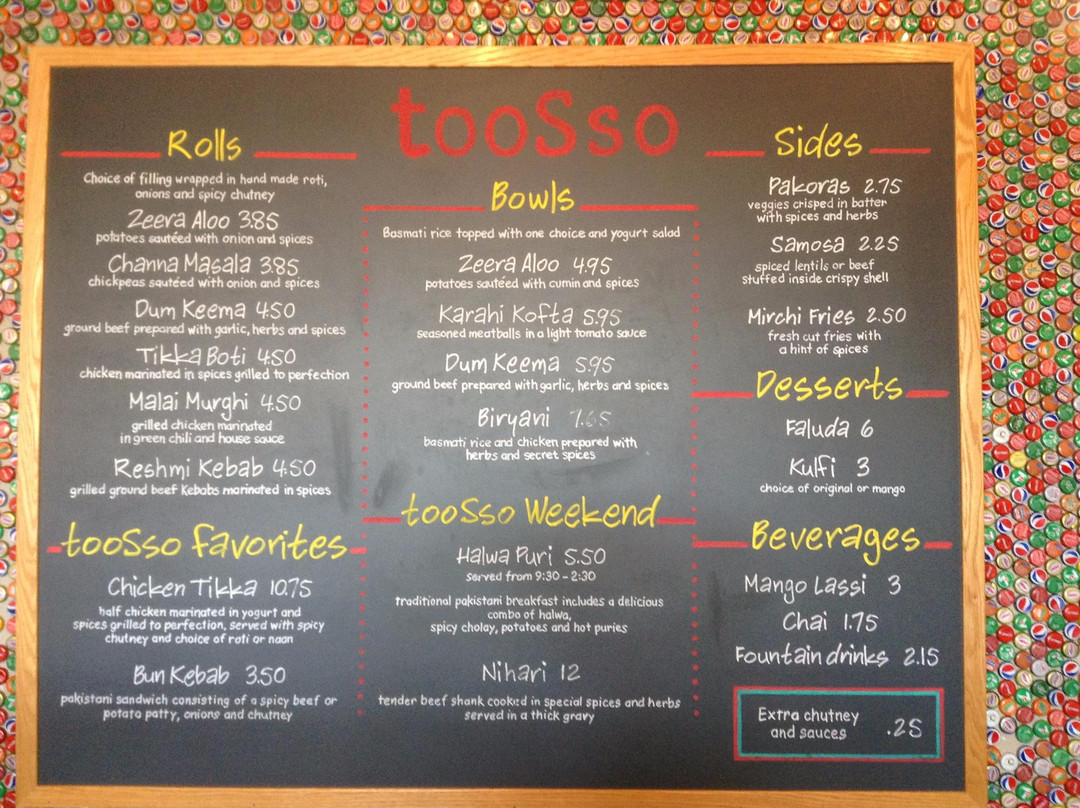 tooSso
Rolls
Choice of filling wrapped in hand made roti,
onions and spicy chutney
Zeera Aloo 3.85
potatoes sautéed with onion and spices
Channa Masala 3.85
chickpeas sautéed with onion and spices
Dum Keema 4.50
ground beef prepared with garlic, herbs and spices
Tikka Boti 4.50
chicken marinated in spices grilled to perfection
Malai Murghi 4.50
grilled chicken marinated
in green chili and house sauce
Reshmi Kebab 4.50
grilled ground beef Kebabs marinated in spices
tooSso favorites
Chicken Tikka 10.75
half chicken marinated in yogurt and
spices grilled to perfection, served with spicy
chutney and choice of roti or naan
Bun Kebab 3.50
pakistani sandwich consisting of a spicy beef or
potato patty, onions and chutney
Bowls
Basmati rice topped with one choice and yogurt salad
Zeera Aloo 4.95
potatoes sautéed with cumin and spices
Karahi Kofta 5.95
seasoned meatballs in a light tomato sauce
Dum Keema 5.95
ground beef prepared with garlic, herbs and spices
Biryani 7.65
basmati rice and chicken prepared with
herbs and secret spices
tooSso Weekend
Halwa Puri 5.50
Served from 9:30 - 2:30
traditional pakistani breakfast includes a delicious
combo of halwa,
spicy cholay, potatoes and hot puries
Nihari 12
tender beef shank cooked in special spices and herbs
served in a thick gravy
Sides
Pakoras 2.75
veggies crisped in batter
with spices and herbs
Samosa 2.25
spiced lentils or beef
stuffed inside crispy shell
Mirchi Fries 2.50
fresh cut fries with
a hint of spices
Desserts
Faluda 6
Kulfi 3
choice of original or mango
Beverages
Mango Lassi 3
Chai 1.75
Fountain drinks 2.15
Extra chutney
and sauces .25